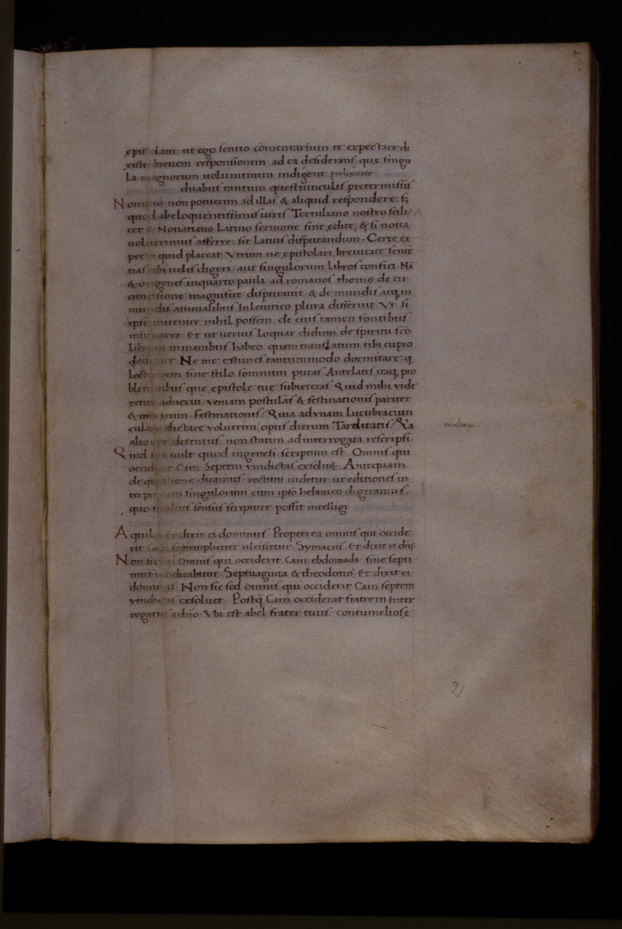 epistolam, ut ego sentio comentarium te expectare di
xisti brevem responsionem ad ea desiderans que singu
la magnorum voluminum indigent prolixitate
duabus tantum questiunculis pretermissis
Non quo non potuerim ad illas & aliquid respondere: sz
quod ab eloquentissimis viris Tertuliano nostro scili
cet & Novatiano Latino sermone sint edite, & si nova
voluerimus afferre, sit Latius disputandum. Certe ex
pecto quid placeat Utrum ne epistolari brevitate sente
tias tibi velis digeri aut singulorum libros confici Ni
& origenes in quarto pauli ad romanos thomo de cir
cuncisione magnifice disputavit & de mundis atq; in
mundis animalibus In levitico plura disseruit Ut si
ipse invenire nihil possem, de eius tamen fontibus
mutuarer Et ut verius Loquar didimi de spiritu sco
librum in manibus habeo quem translatum tibi cupio
dedicare Ne me estimes tantummodo dormitare: q
lectionem sine stilo somnum putas Antelatis itaq; pro
blematibus que epistole tue subieceras Quid mihi vide
retur adnexui veniam postulans & festinationis pariter
& morarum Festinationis Quia ad unam Lucubraciun
culam dictare voluerim opus dierum Tarditatis Qa
alio opere detentus non statim ad interrogata rescripsi
Quid sibi vult quod in genesi scriptum est. Omnis qui
occiderit Cain Septem vindictas exsolvet Antequam
de questione dicamus rectum videtur ut editiones in
terpretum singulorum cum ipso hebraico digeramus
quo facilius sensus scripture possit intellugi
Aquila Et dixit ei dominus. Propterea omnis qui occide
rit Cain septempliciter ulciscetur Symacus Et dixit ei dns
Non sic sed Omnis qui occiderit Cain ebdomada sive septi
mus vindicabitur Septuaginta & theodotio Et dixit ei
dominus Non sic sed omnis qui occiderit Cain septem
vindictas exsolvet. Postq Cain occiderat fratrem Inter
rogatus a dno Ubi est abel frater tuus contumeliose
2